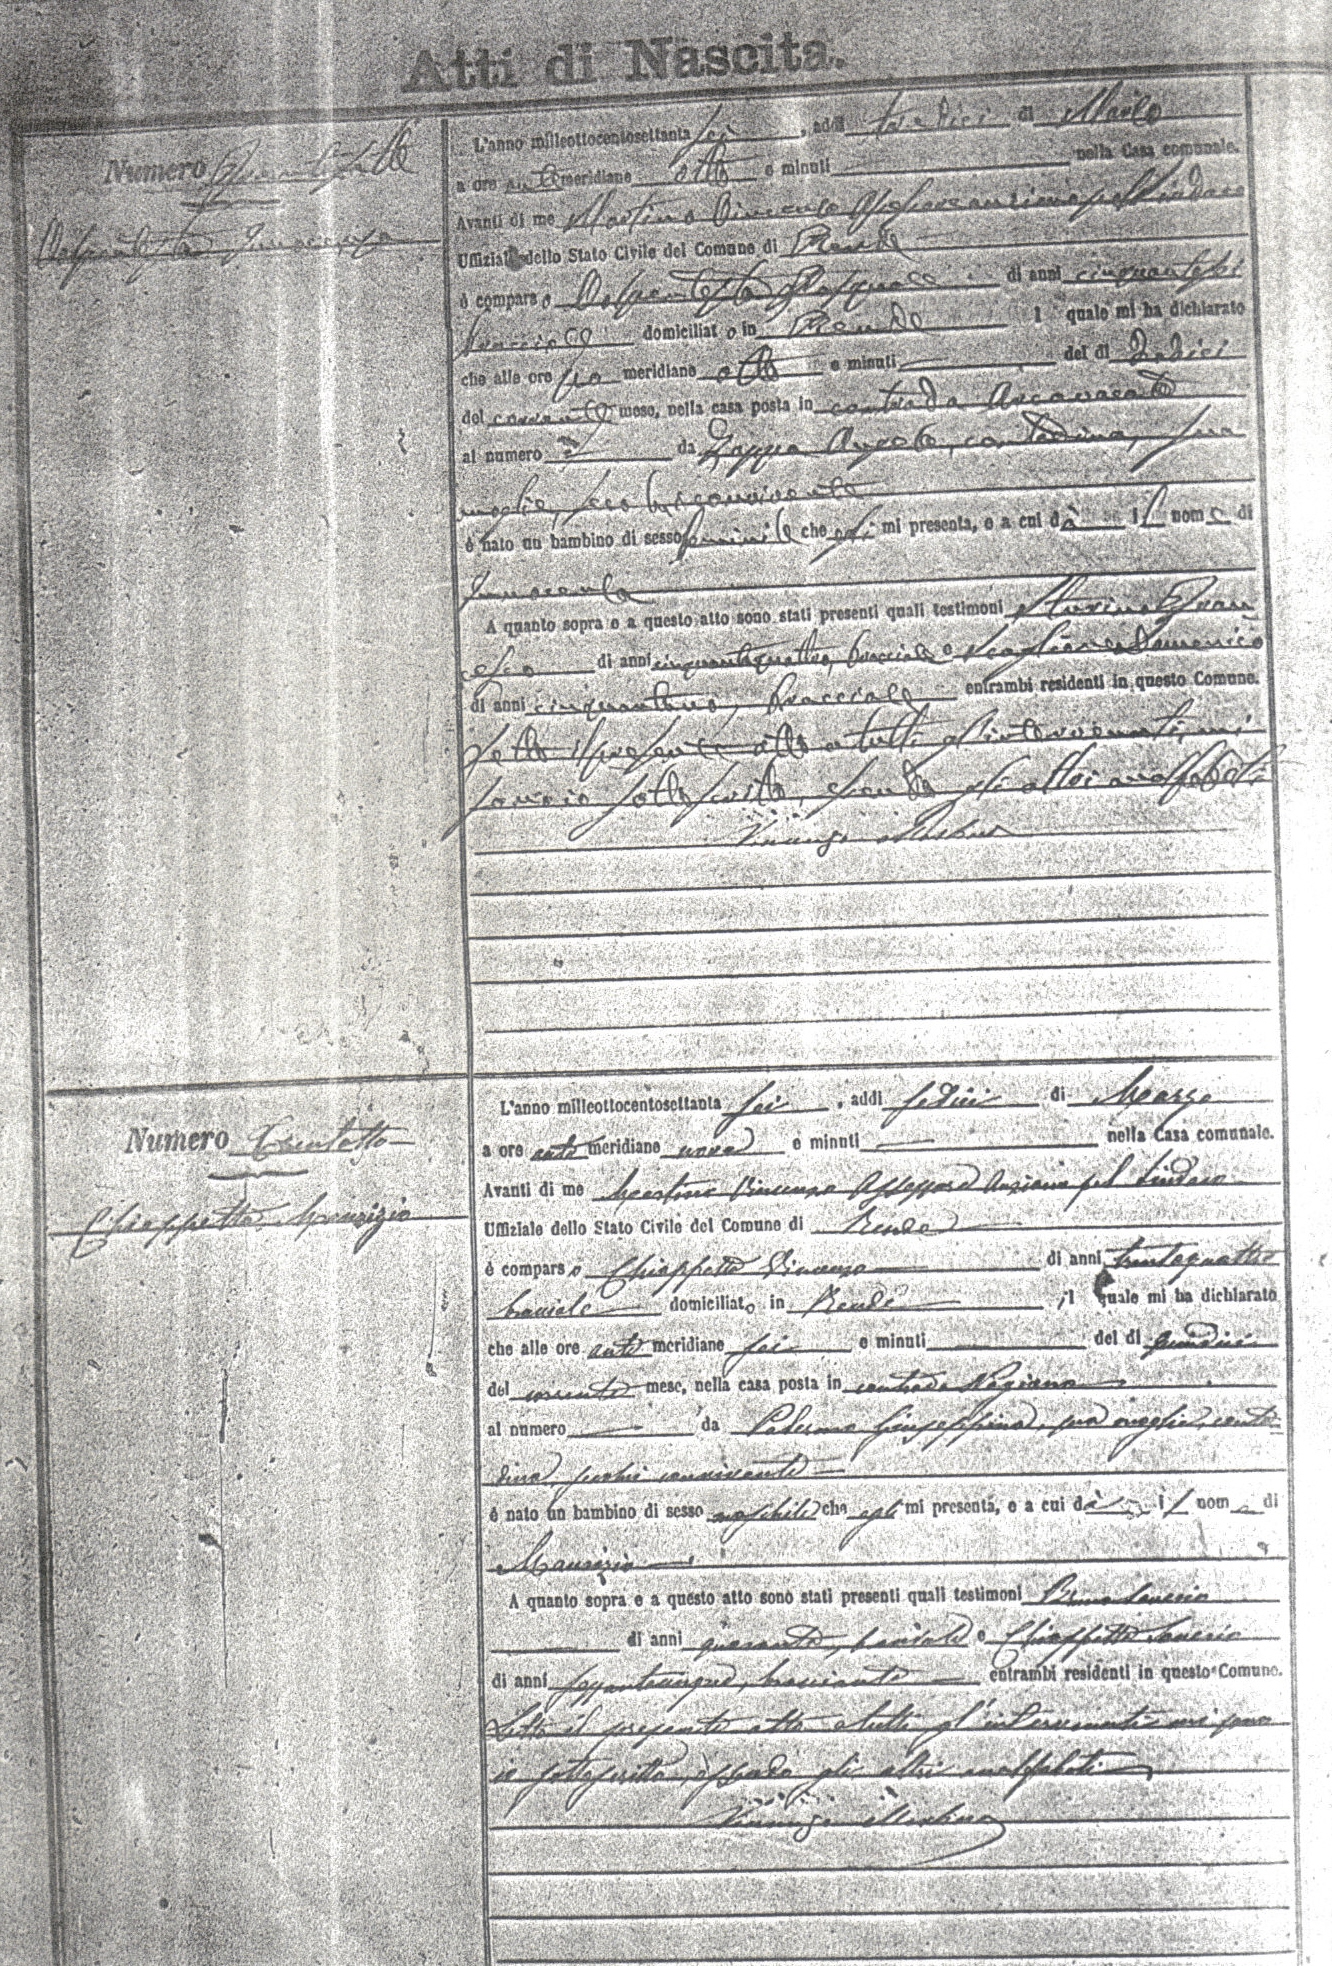 Atti di Nascita.
Numero
Innocenza
L'anno milleottocentosettanta sei, addì tredici di Marzo
a ore ante meridiane otto e minuti nella Casa comunale.
Avanti di me Martino Vincenzo Assessore anziano pel Sindaco
Uffiziale dello Stato Civile del Comune di Rende
è comparso Pasquale di anni
bracciale domiciliato in Rende il quale mi ha dichiarato
che alle ore meridiane otto e minuti del dì dodici
del corrente mese, nella casa posta in contrada Arcavacata
al numero da Zappa contadina, sua
moglie, seco lui convivente
è nato un bambino di sesso femminile che egli mi presenta, e a cui dà il nome di
Innocenza
A quanto sopra e a questo atto sono stati presenti quali testimoni Fran
cesco di anni cinquantaquattro, bracciale e Scaglione Domenico
di anni cinquantuno, bracciale entrambi residenti in questo Comune.
Letto il presente atto a tutti gl'intervenuti, mi
sono io sottoscritto, essendo gli altri analfabeti
Vincenzo Martino
Numero Trentotto
Chiappetta Maurizio
L'anno milleottocentosettanta sei, addì sedici di Marzo
a ore ante meridiane nove e minuti nella Casa comunale.
Avanti di me Martino Vincenzo Assessore Anziano pel Sindaco
Uffiziale dello Stato Civile del Comune di Rende
è comparso Chiappetta Vincenzo di anni trentaquattro
bracciale domiciliato in Rende il quale mi ha dichiarato
che alle ore ante meridiane sei e minuti del dì quindici
del corrente mese, nella casa posta in contrada Nogiano
al numero da Palermo Giuseppina, sua moglie, conta
dina, secolui convivente
è nato un bambino di sesso maschile che egli mi presenta, e a cui dà il nome di
Maurizio
A quanto sopra e a questo atto sono stati presenti quali testimoni Saverio
di anni quaranta, bracciale e Chiappetta Saverio
di anni sessantacinque, bracciante entrambi residenti in questo Comune.
Letto il presente atto a tutti gl'intervenuti mi sono
io sottoscritto, essendo gli altri analfabeti
Vincenzo Martino